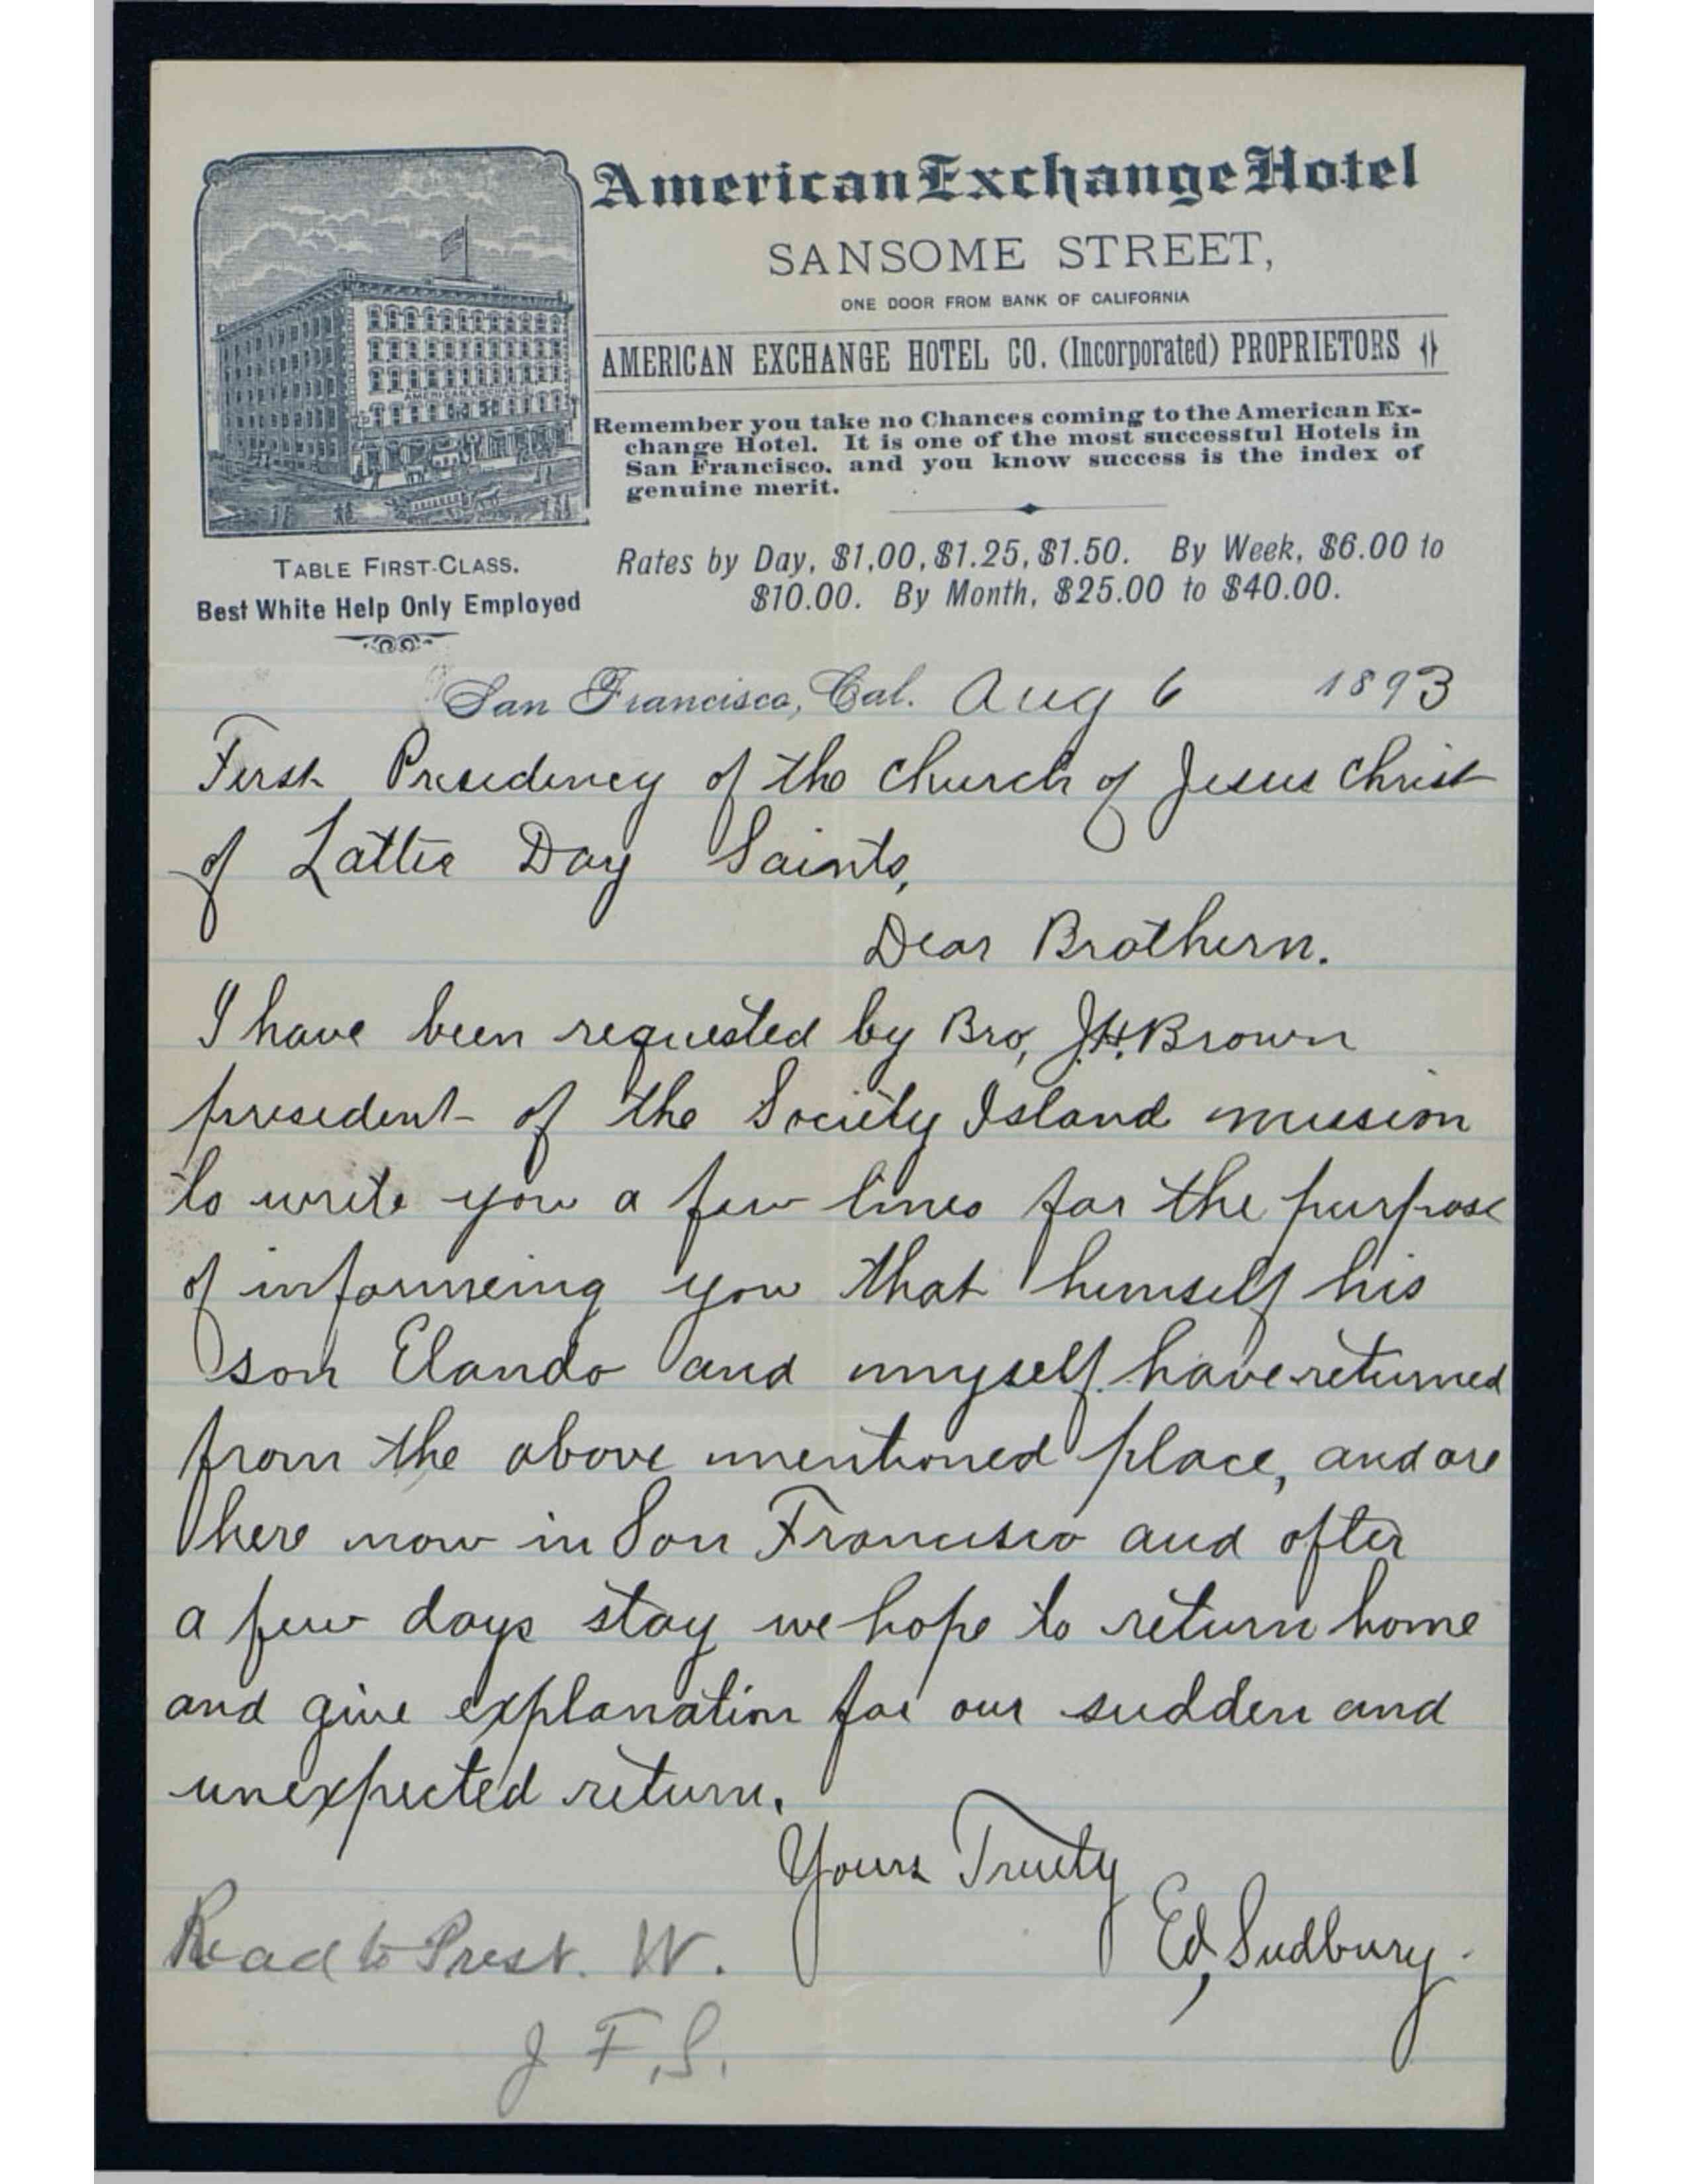 American Exchange Hotel
SANSOME STREET,
ONE DOOR FROM BANK OF CALIFORNIA
AMERICAN EXCHANGE HOTEL CO. (Incorporated) PROPRIETORS
Remember you take no Chances coming to the American Ex-
change Hotel. It is one of the most successful Hotels in
San Francisco, and you know success is the index of
genuine merit.
AMERICAN EXCHANGE
TABLE FIRST-CLASS.
Best White Help Only Employed
Rates by Day, $1,00, $1.25, $1.50. By Week, $6.00 to
$10.00. By Month, $25.00 to $40.00.
San Francisco, Cal. Aug 6 1893
First Presidency of the church of Jesus Christ
of Latter Day Saints,
Dear Brothern.
I have been requested by Bro, J.H. Brown
president of the Society Island mission
to write you a few lines for the purpose
of informeing you that himself his
son Elando and myself have returned
from the above mentioned place, and are
here now in San Francisco and after
a few days stay we hope to return home
and give explanation for our sudden and
unexpected return.
Yours Truely
Ed, Sudbury.
Read to Prest. W.
J. F. S.